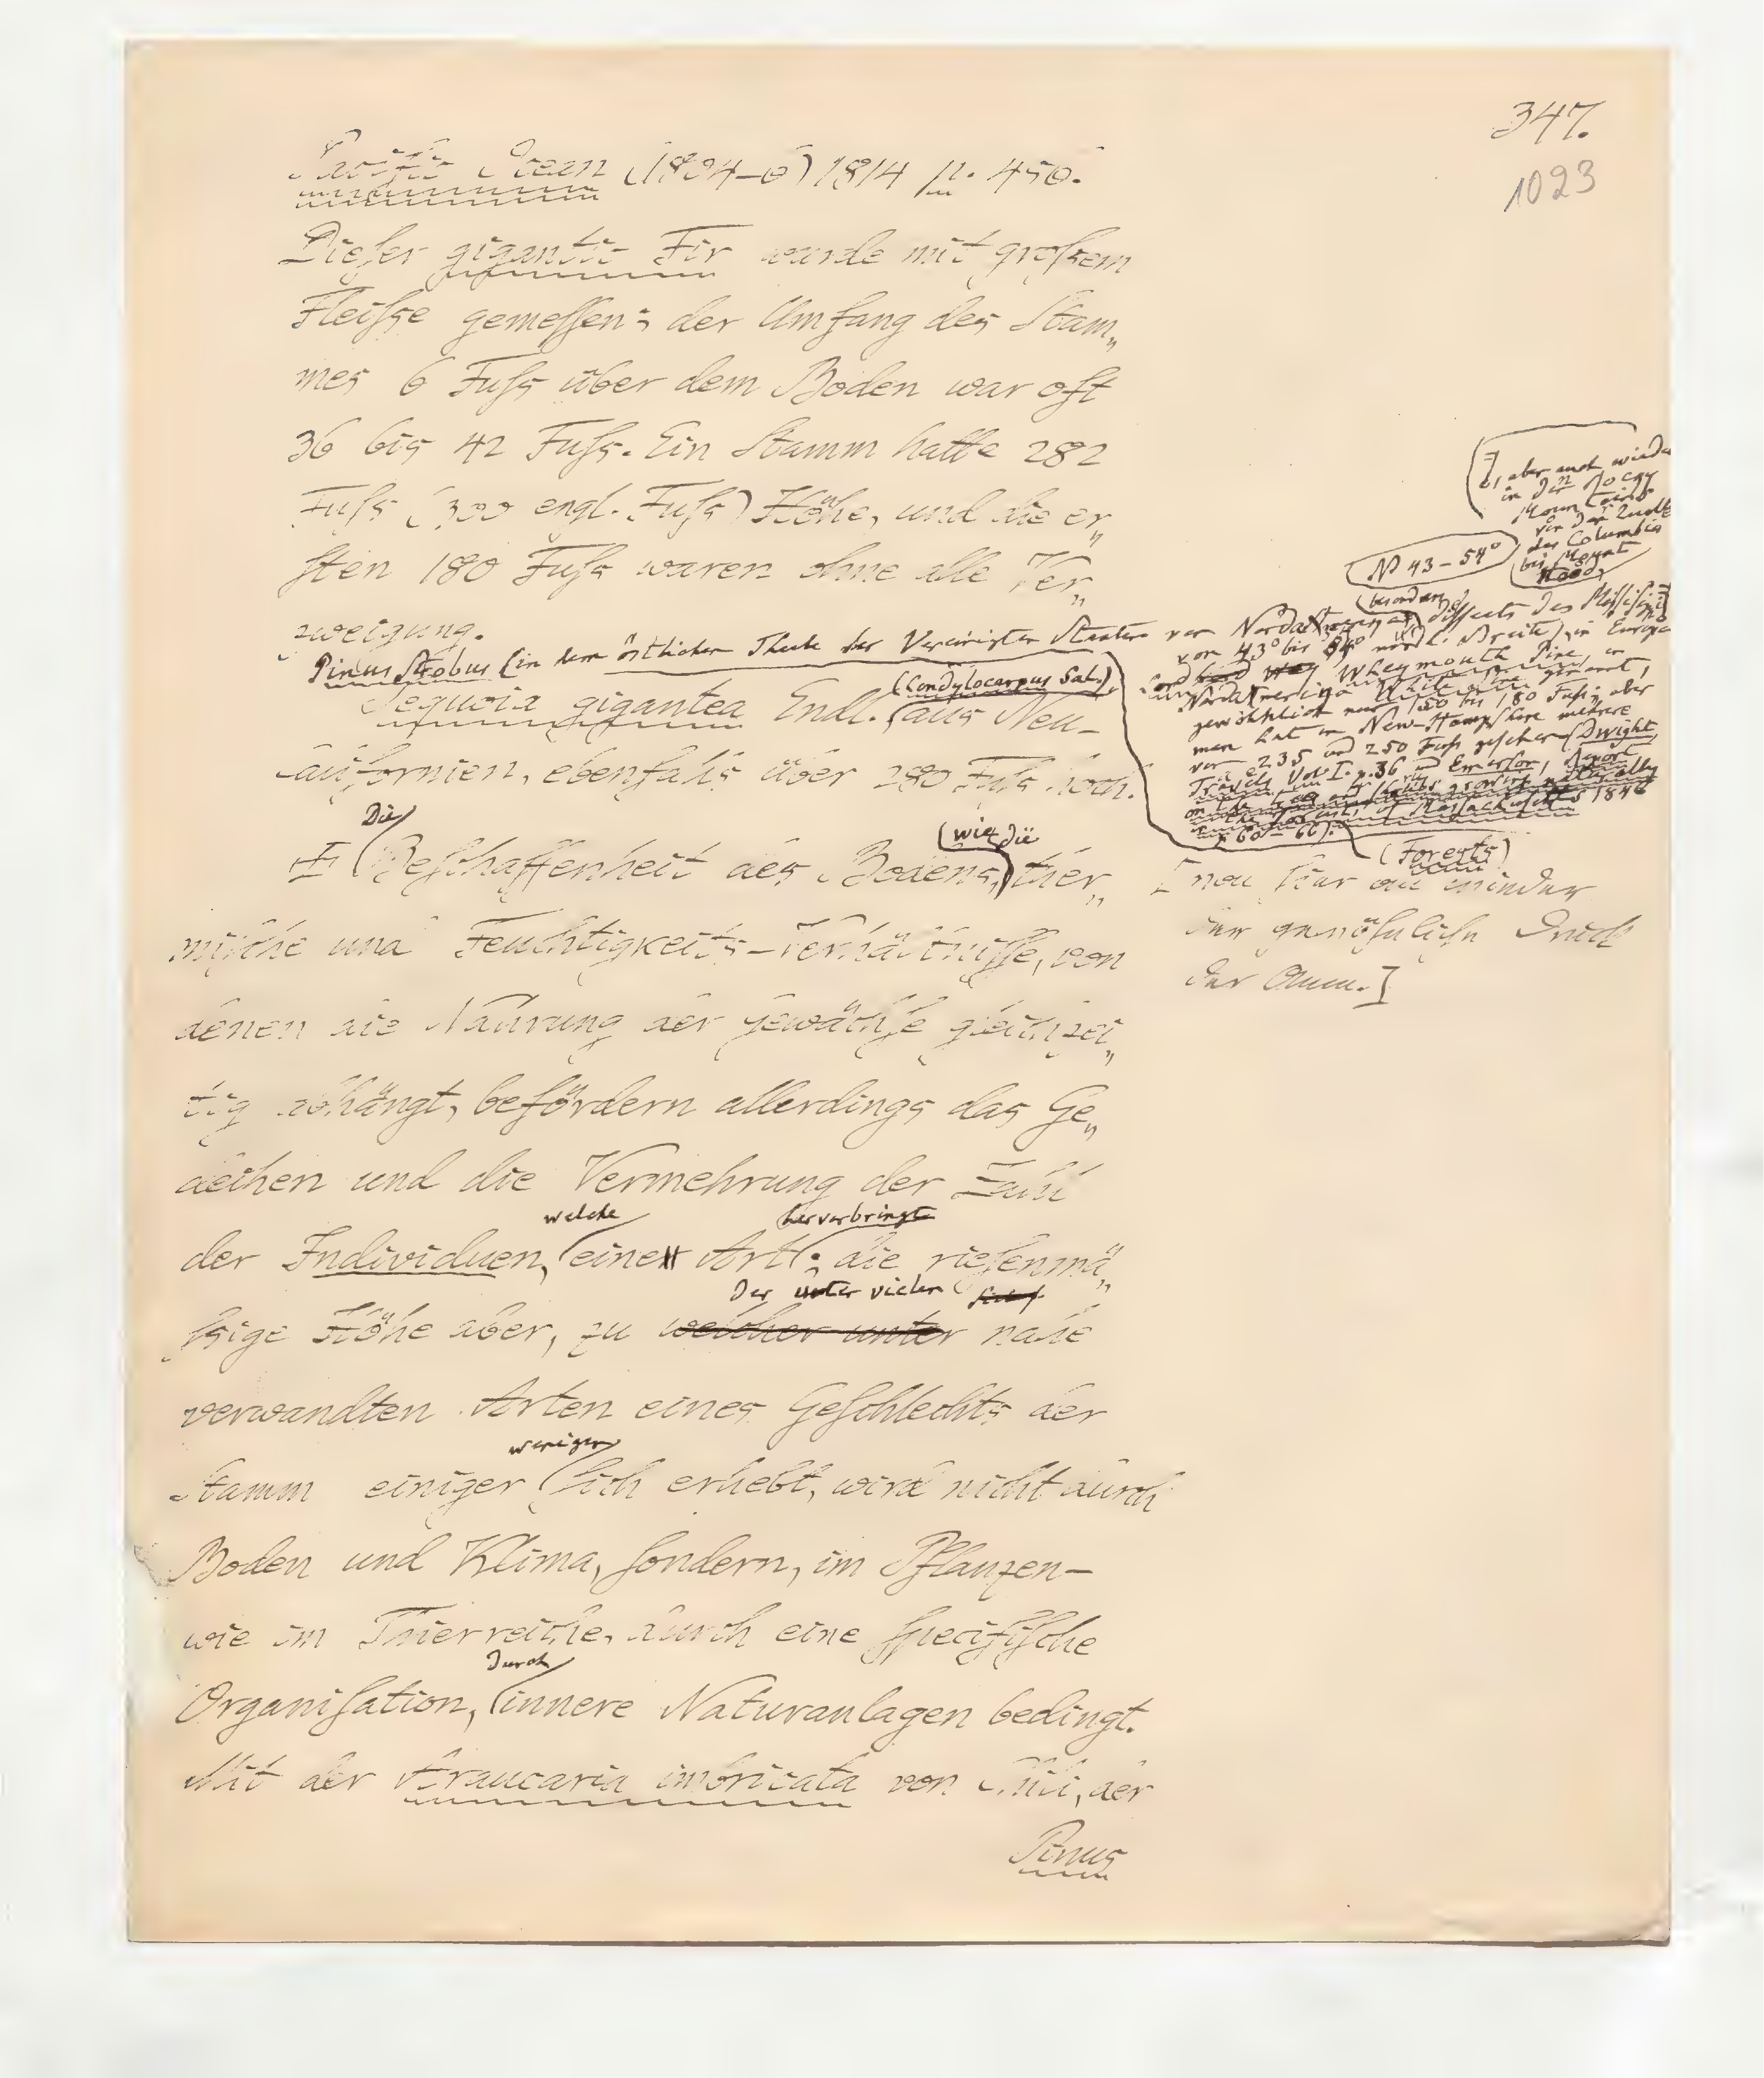 347.
1023
Pacific Ocean (1804–6) 1814 p. 456.
Dieser gigantic Fir wurde mit großem
Fleiße gemessen; der Umfang des Stam„
mes 6 Fuß über dem Boden war oft
36 bis 42 Fuß. Ein Stamm hatte 282
Fuß (300 engl. Fuß) Höhe, und die er„
sten 180 Fuß waren ohne alle Ver„
zweigung.
Pinus Strobus (in dem östlichen Theile der Vereinigten Staaten von Nordamerika,
besonders
diesseits des Mississipi
[, aber auch wieder
in den Rocky
Mountains
von der Quelle
des Columbia
bis Mount
Hood,
N 43–54°
von 43° bis 54° nördl. Breite) in Europa
Lord Weymouth Pine, in
Nordamerica White Pine genannt,
gewöhnlich nur 150 bis 180 Fuß; aber
man hat in New-Hampshire mehrere
von 235 und 250 Fuß gesehen (Dwight,
Travels Vol. I. p. 36 und Emerson, Report
on the trees and shrubs growing naturally
in the Forests of Massachusetts 1846
p. 60–66).
(Forests)
Sequoia gigantea Endl. (Condylocarpus Sal.) aus Neu-
Californien, ebenfalls über 280 Fuß hoch.
Die
Beschaffenheit des Bodens, wie die ther„
mische und Feuchtigkeits-Verhältnisse, von
denen die Nahrung der Gewächse gleichzei„
tig abhängt, befördern allerdings das Ge„
deihen und die Vermehrung der Zahl
der Individuen, welche eine Art hervorbringt; die riesenmä„
ßige Höhe aber, zu welcher unter der unter vielen nahe
verwandten Arten eines Geschlechts der
Stamm einiger weniger sich erhebt, wird nicht durch
Boden und Klima, sondern, im Pflanzen-
wie im Thierreiche, durch eine specifische
Organisation, durch innere Naturanlagen bedingt.
Mit der Araucaria imbricata von Chili, der
Pinus
[von hier an wieder
der gewöhnliche Druck
der Anm.]